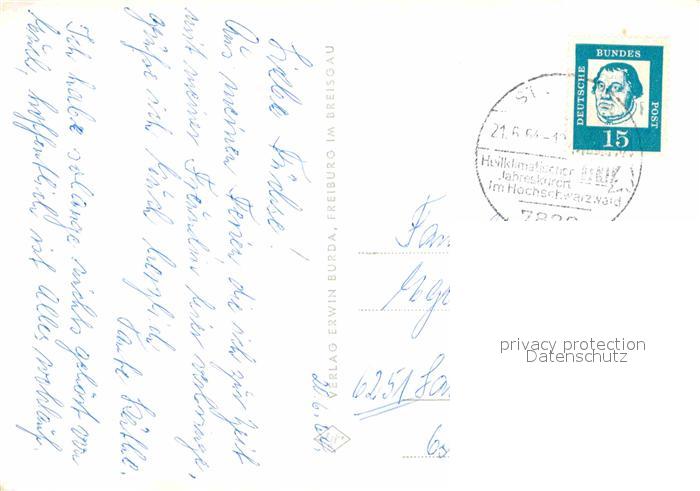 Liebe Füchse!
Aus meinen Ferien die ich zur Zeit
mit meiner Freundin hier verbringe,
grüße ich Euch herzlich
Tante Käthe.
Ich habe solange nichts gehört von
Euch, hoffentlich ist alles wohlauf.
20.6.64.
VERLAG ERWIN BURDA, FREIBURG IM BREISGAU
DEUTSCHE
BUNDES
POST
15
ST.
21.6.64-1
Heilklimatischer
Jahreskurort
im Hochschwarzwald
7822
Fam
6251
privacy protection
Datenschutz